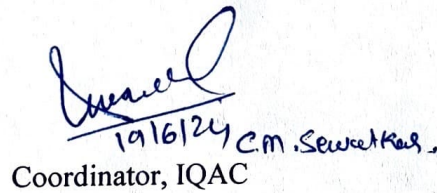 19/6/24 C.M. Sewatkar.
Coordinator, IQAC